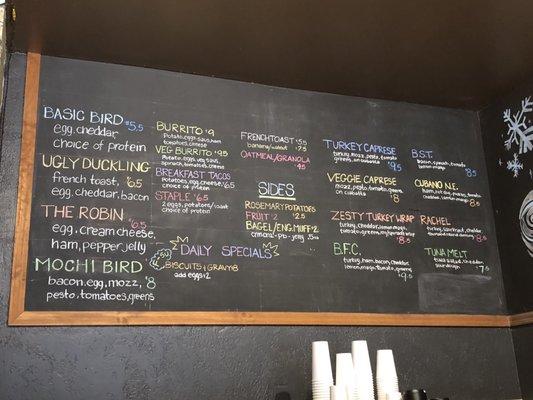 BASIC BIRD $5.5
egg, cheddar,
choice of protein
UGLY DUCKLING
french toast, $6.5
egg, cheddar, bacon
THE ROBIN $6.5
egg, cream cheese,
ham, pepper jelly
MOCHI BIRD
bacon, egg, mozz, $8
pesto, tomatoes, greens
BURRITO $9
tomatoes, cheese
VEG BURRITO $9.5
Potatoes, egg, veg sausg,
tomatoes, cheese
BREAKFAST TACOS
Potatoes, egg, cheese $6.5
choice of protein
STAPLE $6.5
2 eggs, potatoes/toast
choice of protein
DAILY SPECIALS
BISCUITS + GRAVY 8
add eggs +2
FRENCH TOAST $5.5
banana/walnut $7.5
OATMEAL/GRANOLA
$5
SIDES
ROSEMARY POTATOES
FRUIT $2 $2.5
BAGEL/ENG. MUFF $2
TURKEY CAPRESE
turkey, mozz, pesto
greens, tomato $9.5
VEGGIE CAPRESE
mozz, pesto, greens
tomato $8
ZESTY TURKEY WRAP
turkey, cheddar, lemon mayo
$8.5
B.F.C.
turkey, ham, bacon, cheddar
lemon mayo, tomato, greens
$9.5
B.S.T.
Bacon, spinach, tomato,
lemon mayo $8
CUBANO N.E.
$8.5
RACHEL
$8.5
TUNA MELT
tuna salad, cheddar
sourdough $7.5